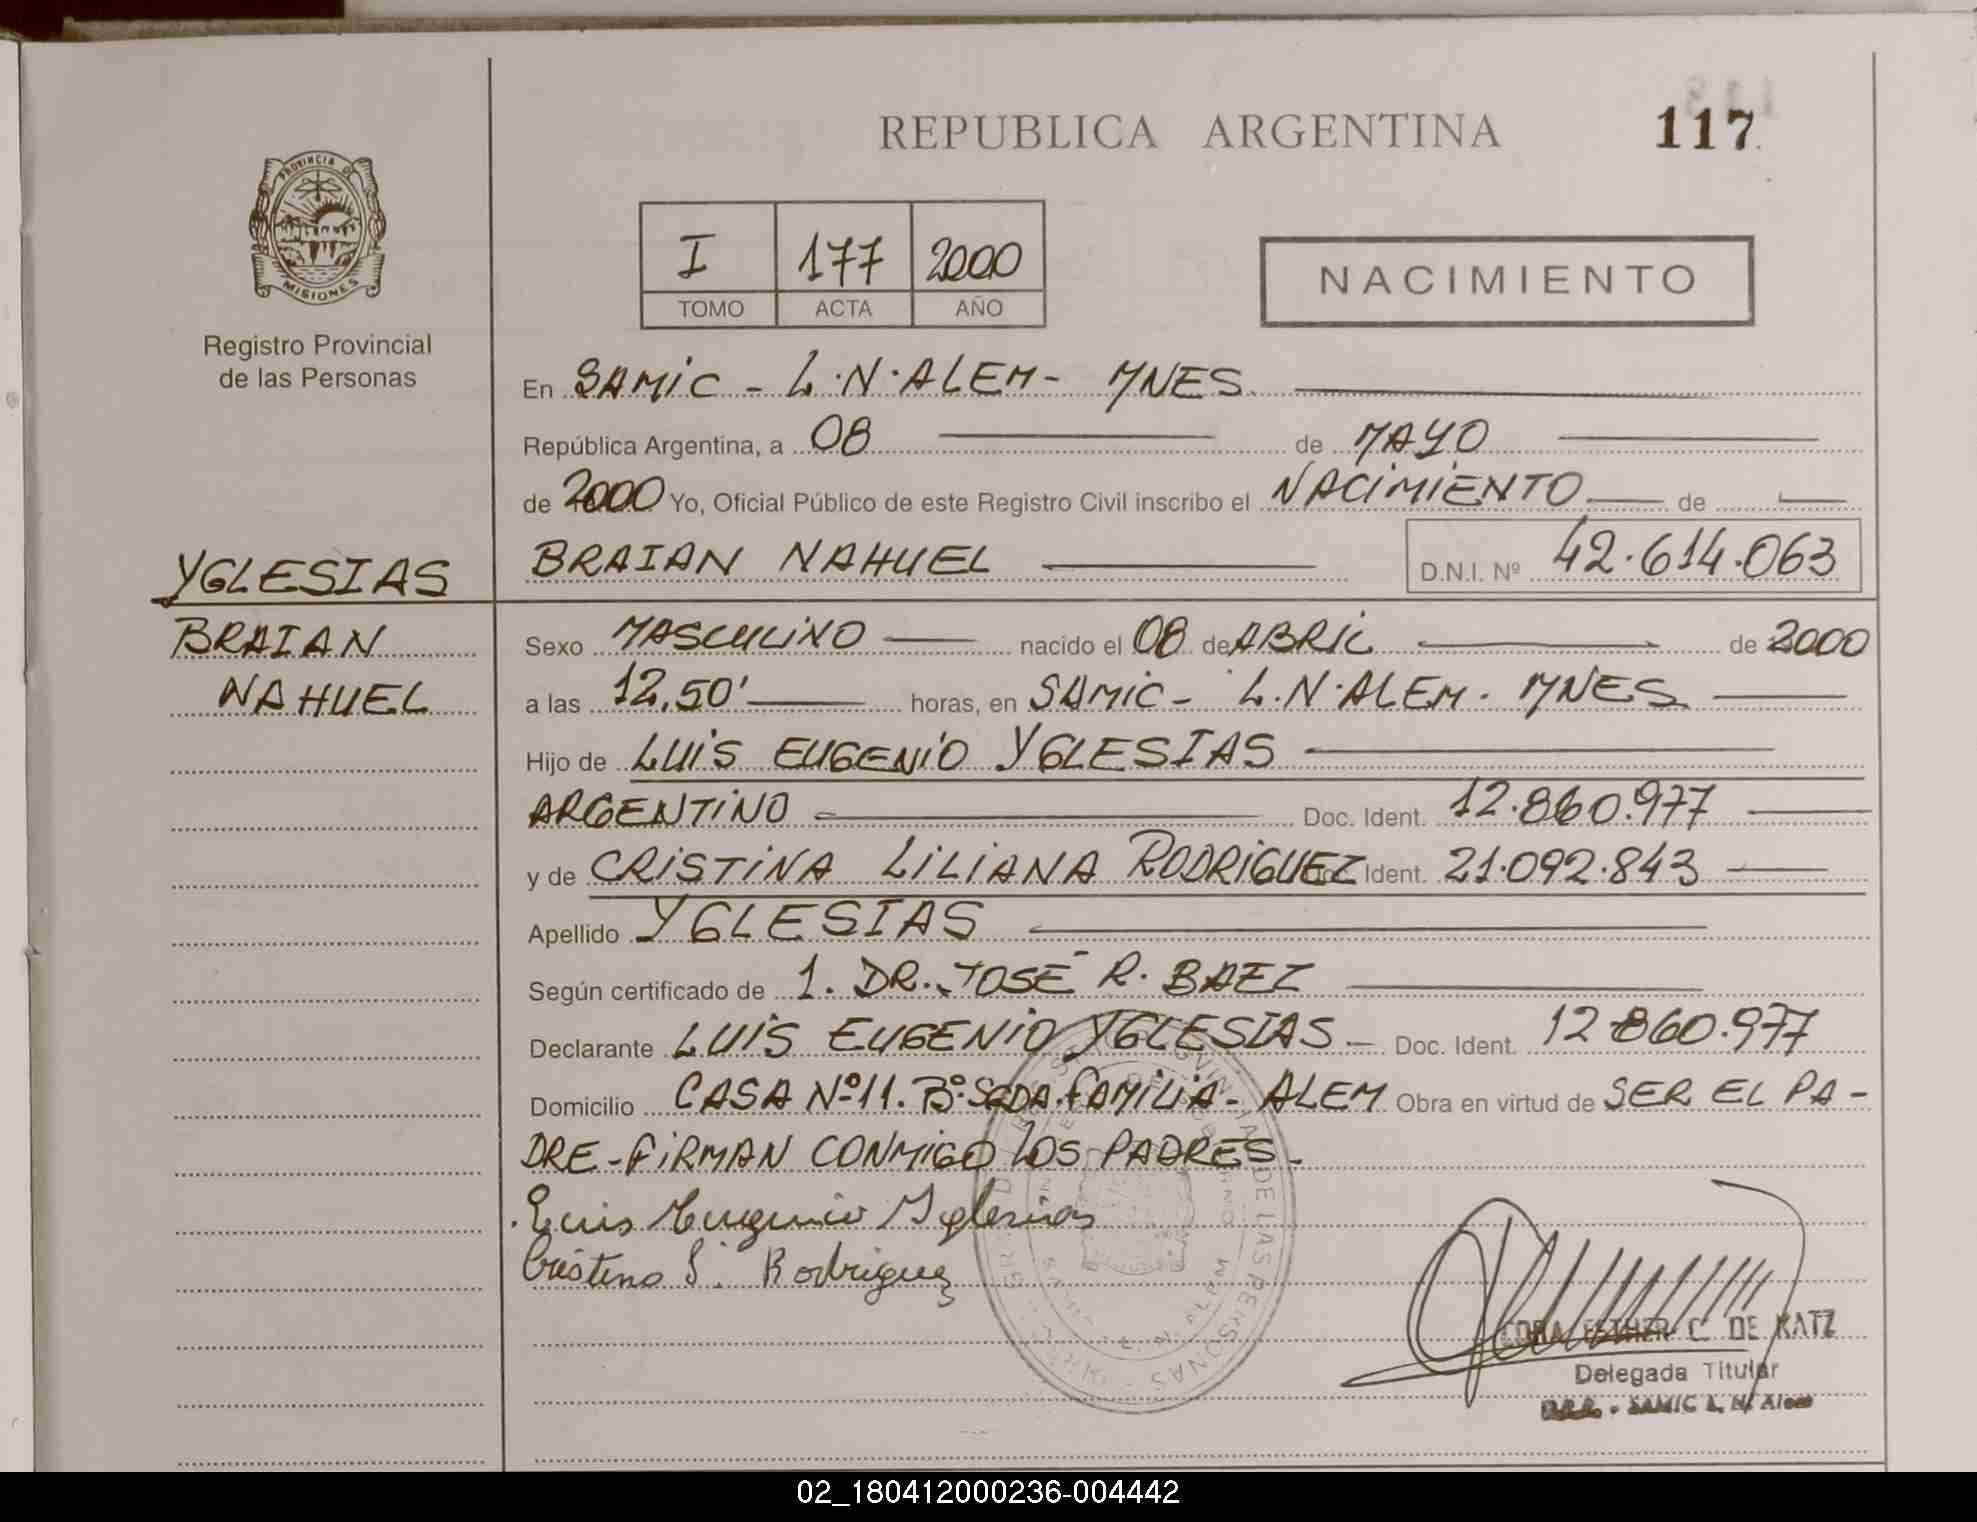 REPUBLICA ARGENTINA
117
PROVINCIA
MISIONES
Registro Provincial
de las Personas
I 177 2000
TOMO ACTA AÑO
NACIMIENTO
En SAMiC - L.N.ALEM- MNES.
República Argentina, a 08 de MAYO
de 2000 Yo, Oficial Público de este Registro Civil inscribo el NACiMiENTO de
YGLESIAS
BRAIAN NAHUEL D.N.I. Nº 42.614.063
BRAIAN
NAHUEL
Sexo MASCULiNO nacido el 08 de ABRiL de 2000
a las 12,50' horas, en SAMiC - L.N.ALEM. MNES
Hijo de LUiS EUGENiO YGLESIAS
ARGENTiNO Doc. Ident. 12.860.977
y de CRiSTiNA LiLiANA RODRiGUEZ Ident. 21.092.843
Apellido YGLESIAS
Según certificado de 1. DR. JOSÉ R. BAEZ
Declarante LUiS EUGENiO YGLESIAS - Doc. Ident. 12.860.977
Domicilio CASA Nº11. Bº.SGDA.FAMiLiA- ALEM Obra en virtud de SER EL PA-
DRE-FiRMAN CONMiGO LOS PADRES-
Luis Eugenio Yglesias
Cristina L. Rodriguez
DE LAS PERSONAS
ESTHER C. DE KATZ
Delegada Titular
SAMIC L. N. Alem
02_180412000236-004442